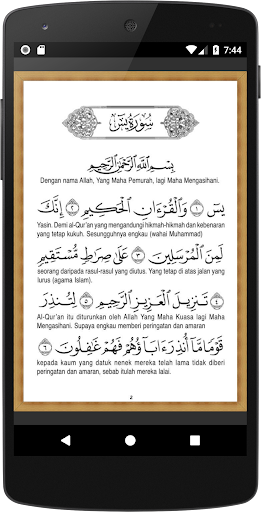 7:44
سورة يس
بسم الله الرحمن الرحيم
Dengan nama Allah, Yang Maha Pemurah, lagi Maha Mengasihani.
يسٓ ١ وَٱلْقُرْءَانِ ٱلْحَكِيمِ ٢ إِنَّكَ
Yasin. Demi al-Qur'an yang mengandungi hikmah-hikmah dan kebenaran
yang tetap kukuh. Sesungguhnya engkau (wahai Muhammad)
لَمِنَ ٱلْمُرْسَلِينَ ٣ عَلَىٰ صِرَٰطٍ مُّسْتَقِيمٍ
seorang daripada rasul-rasul yang diutus. Yang tetap di atas jalan yang
lurus (agama Islam).
٤ تَنزِيلَ ٱلْعَزِيزِ ٱلرَّحِيمِ ٥ لِتُنذِرَ
Al-Qur'an itu diturunkan oleh Allah Yang Maha Kuasa lagi Maha
Mengasihani. Supaya engkau memberi peringatan dan amaran
قَوْمًا مَّآ أُنذِرَ ءَابَآؤُهُمْ فَهُمْ غَٰفِلُونَ ٦
kepada kaum yang datuk nenek mereka telah lama tidak diberi
peringatan dan amaran, sebab itulah mereka lalai.
2